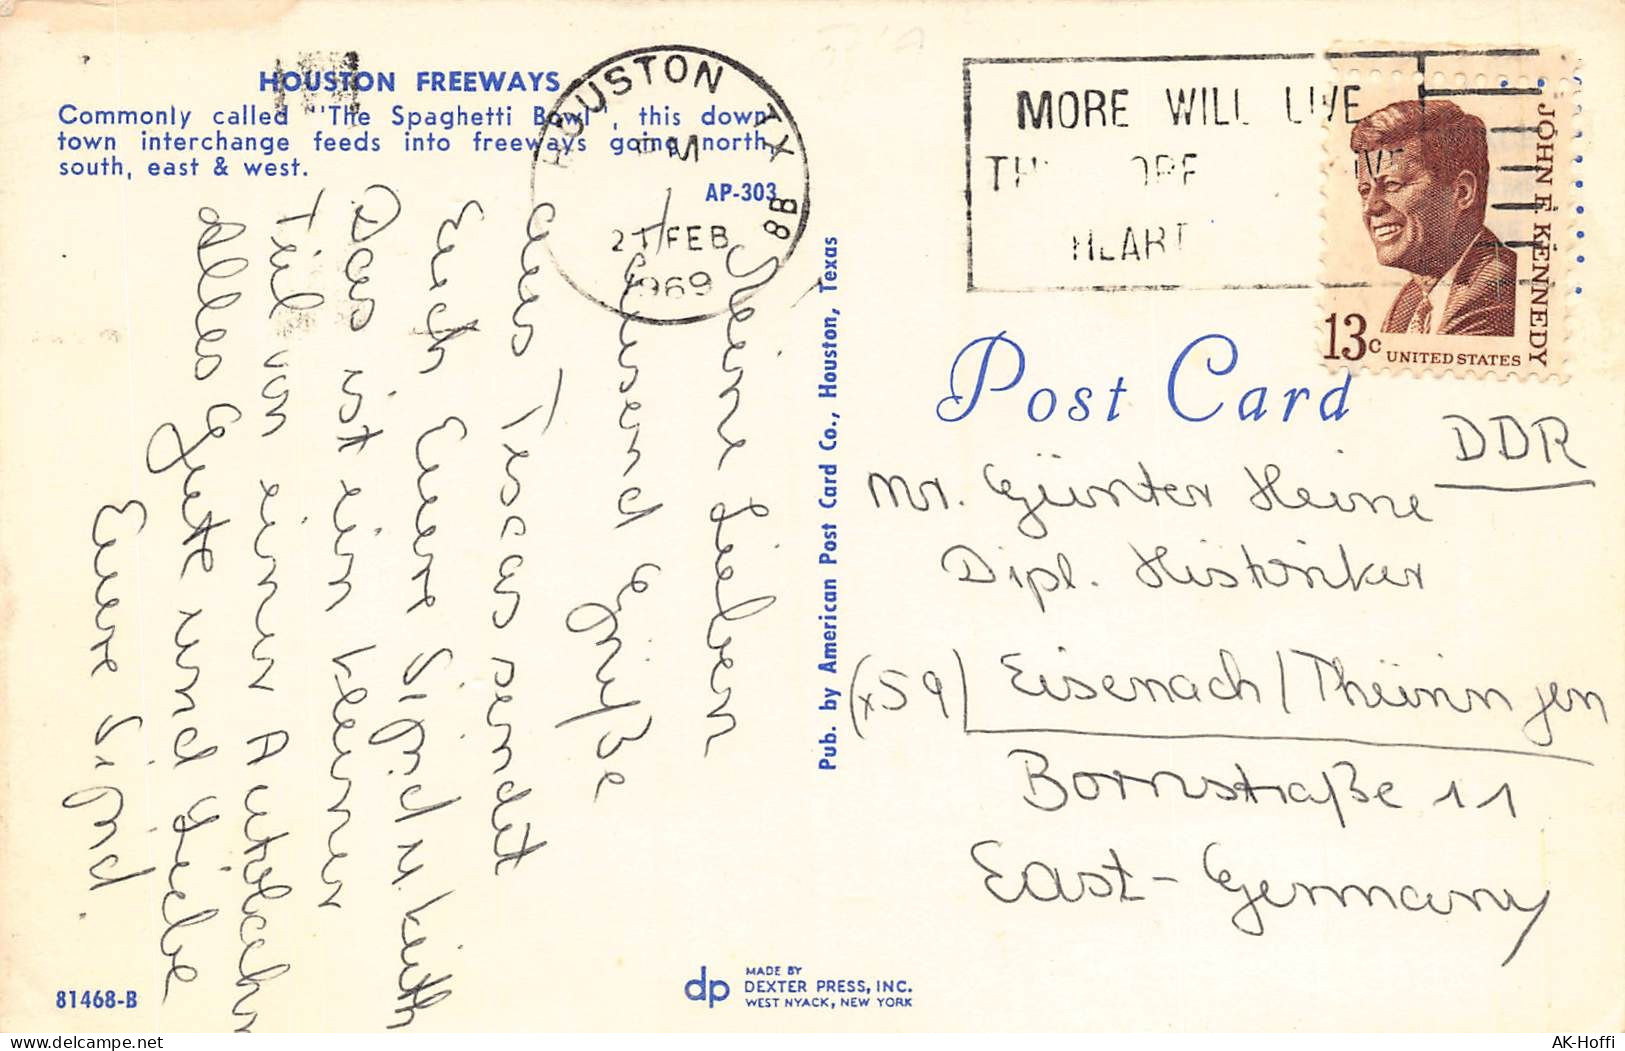 HOUSTON FREEWAYS
Commonly called "The Spaghetti Bowl", this down
town interchange feeds into freeways going north,
south, east & west.
AP-303
HOUSTON TX
PM
21 FEB
1969
8B
MORE WILL LIVE
HEART
JOHN F. KENNEDY
13c UNITED STATES
Post Card
DDR
Mr. Günter Heine
Dipl. Historiker
(x59) Eisenach/Thüringen
Bornstraße 11
East-Germany
Meine Lieben
Tausend Grüße
aus Texas sendet
Euch Eure Sigrid u. Keith
Das ist ein kleiner
Teil von einer Autobahn
Alles Gute und Liebe
Eure Sigrid.
Pub. by American Post Card Co., Houston, Texas
81468-B
dp
MADE BY
DEXTER PRESS, INC.
WEST NYACK, NEW YORK
AK-Hoffi